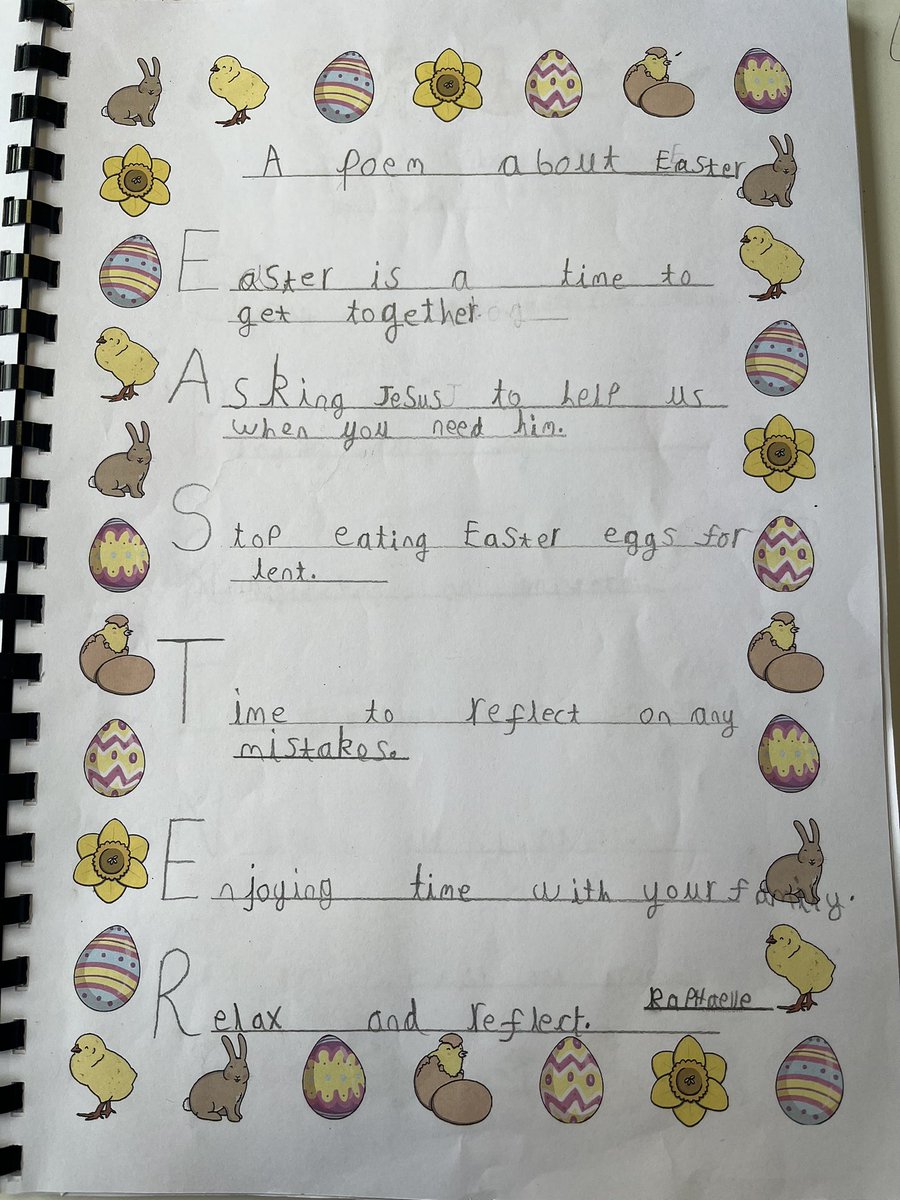 A poem about Easter
Easter is a time to
get together.
Asking Jesus to help us
when you need him.
Stop eating Easter eggs for
lent.
Time to reflect on any
mistakes.
Enjoying time with your family.
Relax and reflect.
Raphaelle